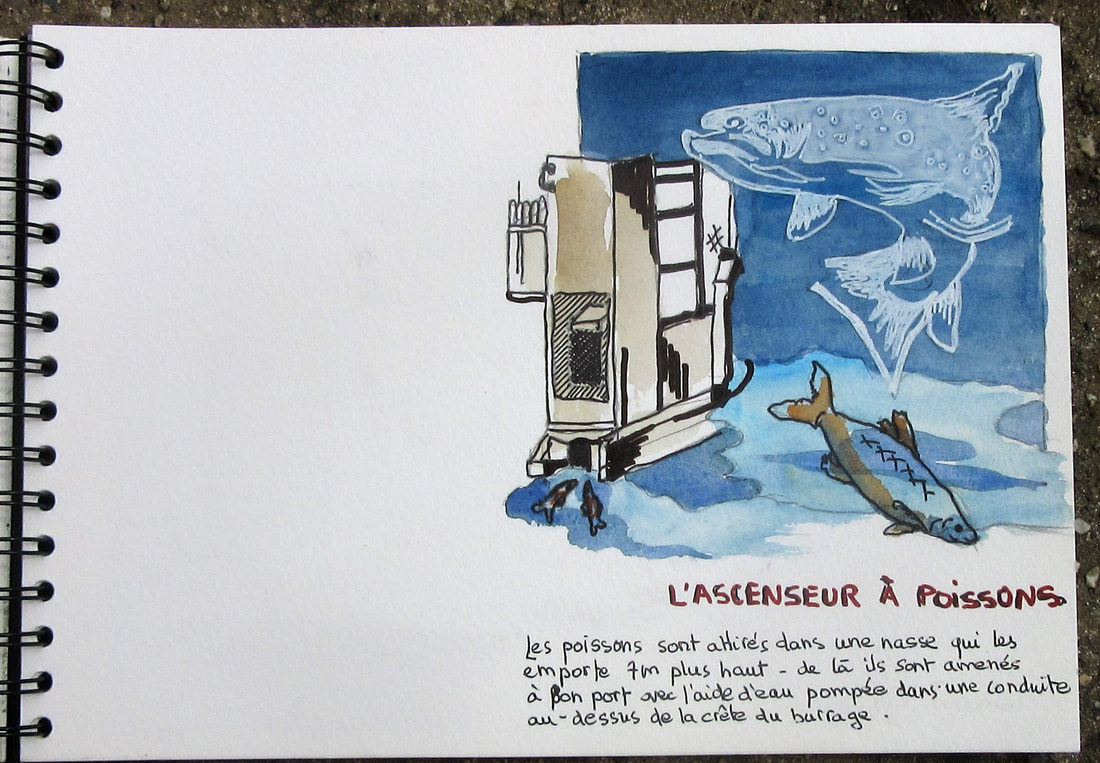 L'ASCENSEUR À POISSONS.
Les poissons sont attirés dans une nasse qui les
emporte 7m plus haut - de là ils sont amenés
à bon port avec l'aide d'eau pompée dans une conduite
au-dessus de la crête du barrage.